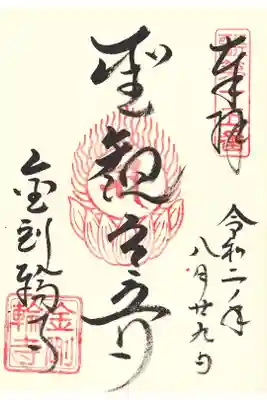 奉拝
令和二年
八月廿九日
聖観世音
金剛輪寺
金剛
輪寺